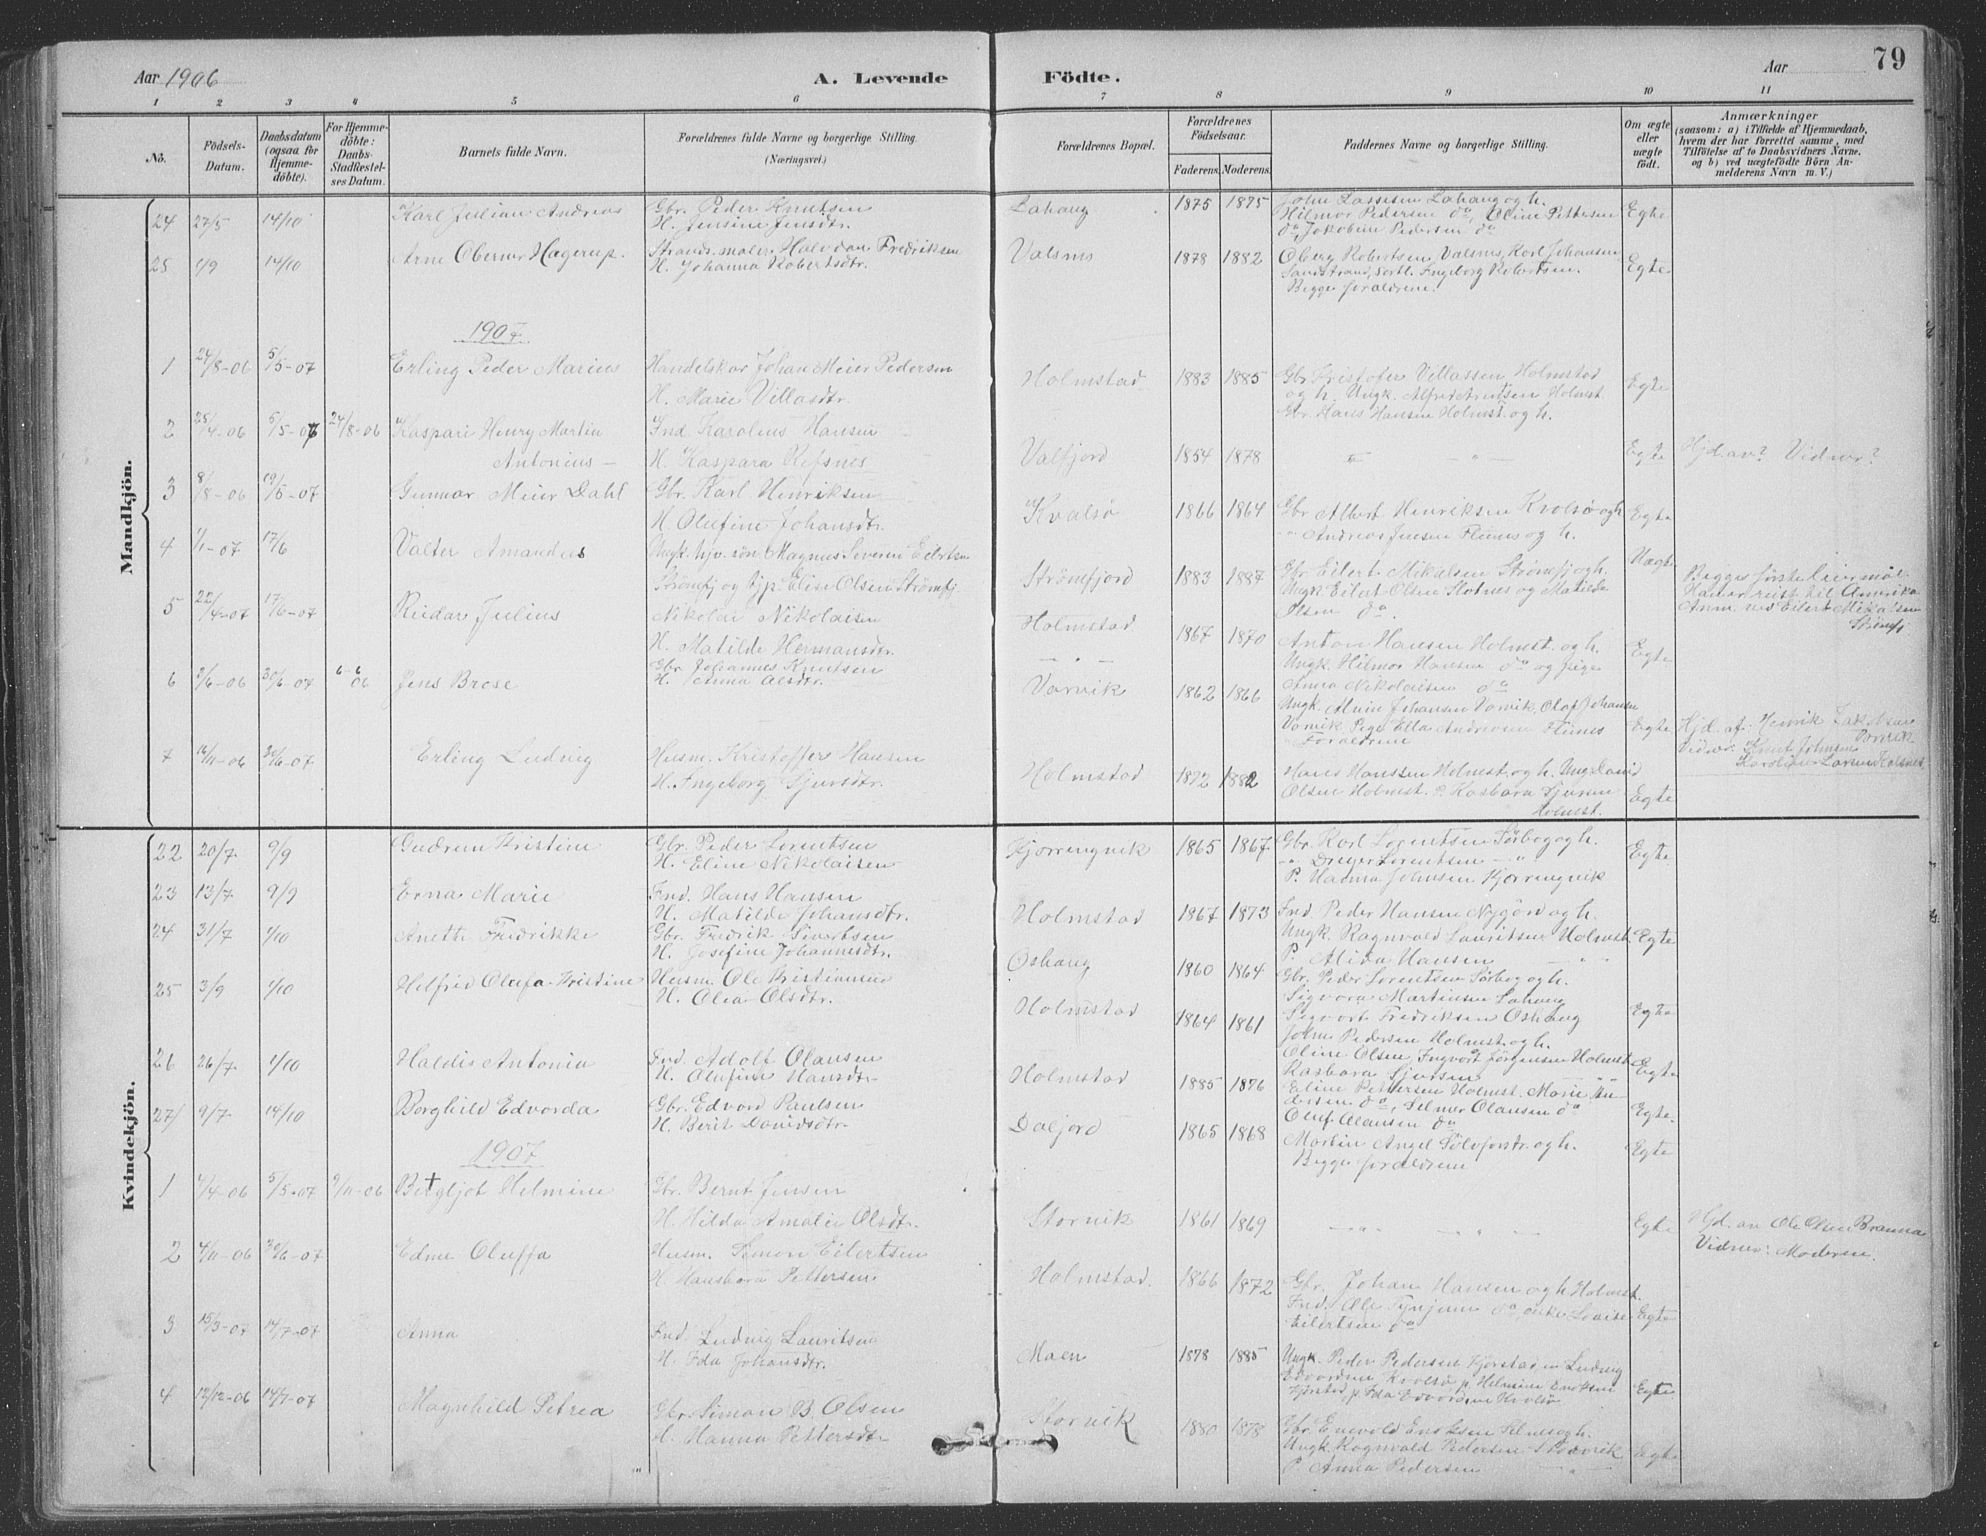 Aar 1906
A. Levende Födte.
Aar
79
1 2 3 4 5 6 7 8 9 10 11
No.
Födsels-Datum.
Daabsdatum (ogsaa for Hjemme-döbte).
For Hjemme-döbte: Daabs-Stadfæstel-ses Datum.
Barnets fulde Navn.
Forældrenes fulde Navne og borgerlige Stilling. (Næringsvei.)
Forældrenes Bopæl.
Forældrenes Födselsaar.
Faderens. Moderens.
Faddernes Navne og borgerlige Stilling.
Om ægte eller uægte födt.
Anmærkninger
(saasom: a) i Tilfælde af Hjemmedaab, hvem der har forrettet samme, med Tilföielse af to Daabsvidners Navne, og b) ved uægtefödte Börn An-melderens Navn m. V.)
Mandkjön.
24 27/5 14/10 Karl Julian Andreas Gbr. Peder Knutsen Lahaug 1875 1875 John Lassesen Lahaug og h. Egte
H. Jensine Jensdtr. Hilmor Pedersen do, Oline Pettersen
do Jakobine Pedersen do
25 1/9 14/10 Arne Oberner Hagerup. Strands. maler Halvdan Fredriksen Valsnes 1878 1882 Oberg Robertsen Valsnes, Karl Johansen Egte
H. Johanna Robertsdtr. Sandstrand, Sortl. Ingeborg Robertsen.
Begge foraldrene.
1907
1 24/8-06 5/5-07 Erling Peder Marius Handelskar Johan Meier Pedersen Holmstad 1883 1885 Gbr Kristofer Villassen Holmstad Egte
H. Marie Villasdtr. og h. Ungk. Alfred Arntsen Holmst
Gbr. Hans Hansen Holmst. og h.
2 25/4-06 5/5-07 24/8-06 Kaspari Henry Martin Ind Karolius Hansen Valfjord 1854 1878 Egte Hjd. av? Vidner?
Antonius H. Kaspara Refsnes
3 8/8-06 19/5-07 Gunnar Meier Dahl Gbr. Karl Henriksen Kvalsø 1866 1864 Gbr Albert Henriksen Kvolsø og h Egte
H. Olufine Johansdtr. " Andreas Jensen Flesnes og h.
4 1/1-07 17/6 Valter Amandus Ungk. hjv. søn Magnus Severin Eilertsen Strömfjord 1883 1887 Gbr Eilert Mikalsen Strömfj og h. Uægte Begges første leiermål
Strömfj og Pjp. Elise Olsen Strömfj Ungk Eilert Olsen Slotnes og Matilde Olsen do. Han er reist til Amerika
Anm. ves Eilert Mikalsen Strömfj.
5 22/4-07 17/6-07 Reidar Julius Nikolai Nikolaisen Holmstad 1867 1870 Anton Hansen Holmst. og h. Egte
H. Matilde Hermansdtr. Ungk Hilmor Hansen do og pige
Anna Nikolaisen do
6 2/6-06 30/6-07 6-6 06 Jens Brose Gbr. Johannes Knutsen Vorvik 1862 1866 Ungk. Alvin Johansen Vorvik, Olaf Johansen Egte Hjd. af Henrik Jakobsen Vorvik
H. Vorvik Pige Ella Andresen Flesnes Vidner: Knut Johnsen
Foraldrene
7 16/11-06 30/6-07 Erling Ludvig Husm. Kristoffer Hansen Holmstad 1872 1882 Hans Hanssen Holmst. og h. Ungk David Egte
H. Ingeborg Sjursdtr. Olsen Holmst. P. Kasbara Sjursen
Holmst.
Kvindekjön.
22 20/7 9/9 Gudrun Kristine Gbr. Peder Lorentsen Kjörringvik 1865 1867 Gbr. Karl Lorentsen Sörbog og h. Egte
H. Eline Nikolaisen " Dreyer Lorentsen
P. Hanna Johnsen Kjörringvik
23 13/7 9/9 Erna Marie Ind. Hans Hansen Holmstad 1867 1873 Ind Peder Hansen Nygård og h. Egte
H. Matilde Johansdtr. Ungk. Ragnvald Lauritsen Holmst.
P. Alida Hansen
24 31/7 1/10 Anette Fredrikke Gbr. Fredrik Sivertsen Oshaug 1860 1864 Gbr. Peder Lorentsen Sörbog og h. Egte
H. Josefine Johannesdtr. Sigvora Martinsen Lahaug
Sigvort Fredriksen Oshaug
25 3/9 1/10 Helfrid Olufa Kristine Husm. Ole Kristiansen Holmstad 1864 1861 John Pedersen Holmst. og h. Egte
H. Olea Olsdtr. Oline Olsen, Ingvort Jörgensen Holmst
Kasbara Sjursen
26 26/7 1/10 Haldis Antonia Ind. Adolf Olausen Holmstad 1885 1876 Eline Pettersen Holmst. Marie An- Egte
H. Olufine Hansdtr. dersen do, Selmer Olausen do
Oluf Olausen do
27 9/7 14/10 Borghild Edvorda Gbr. Edvord Paulsen Daljord 1865 1868 Martin Angel Sölvforstr. og h. Egte
H. Berit Davidsdtr. Begge foraldrene
1907
1 4/4-06 5/5-07 9/11-06 Bergljot Helmine Gbr. Bernt Jensen Storvik 1861 1869 Egte Hjd. av Ole Olsen Branna
H. Hilda Amalie Olsdtr. Vidner: Moderen.
2 4/11-06 30/6-07 Edme Oluffa Husm. Simon Eilertsen Holmstad. 1866 1872 Gbr. Johan Hansen og h Holmst. Egte
H. Hansbora Pettersen Ind. Ole Tynjum do, enke Lovise
Eilertsen do
3 15/3-07 14/7-07 Anna Ind. Ludvig Lauritsen Maen 1878 1885 Ungk. Peder Pedersen Kjörstad Ludvig Egte
H. Ida Johansdtr. Edvordsen Kvolsö p. Helmine Eriksen
Kjörstad p. Ida Edvordsen Kvolsö
4 12/12-06 14/7-07 Magnhild Petrea Gbr Simon B. Olsen Storvik 1880 1878 Gbr. Enevold Selnes og h. Egte
H. Hanna Pettersdtr Ungk Ragnvald Pedersen Storvik
P. Anna Pedersen